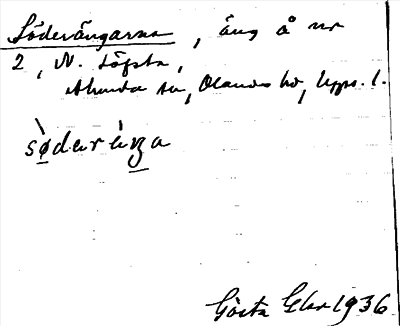 Söderängarna, äng å nr
2, N. Löfsta,
Alunda sn, Olands hd, Upps. l.
sø̀derὲŋa
Gösta Eks 1936